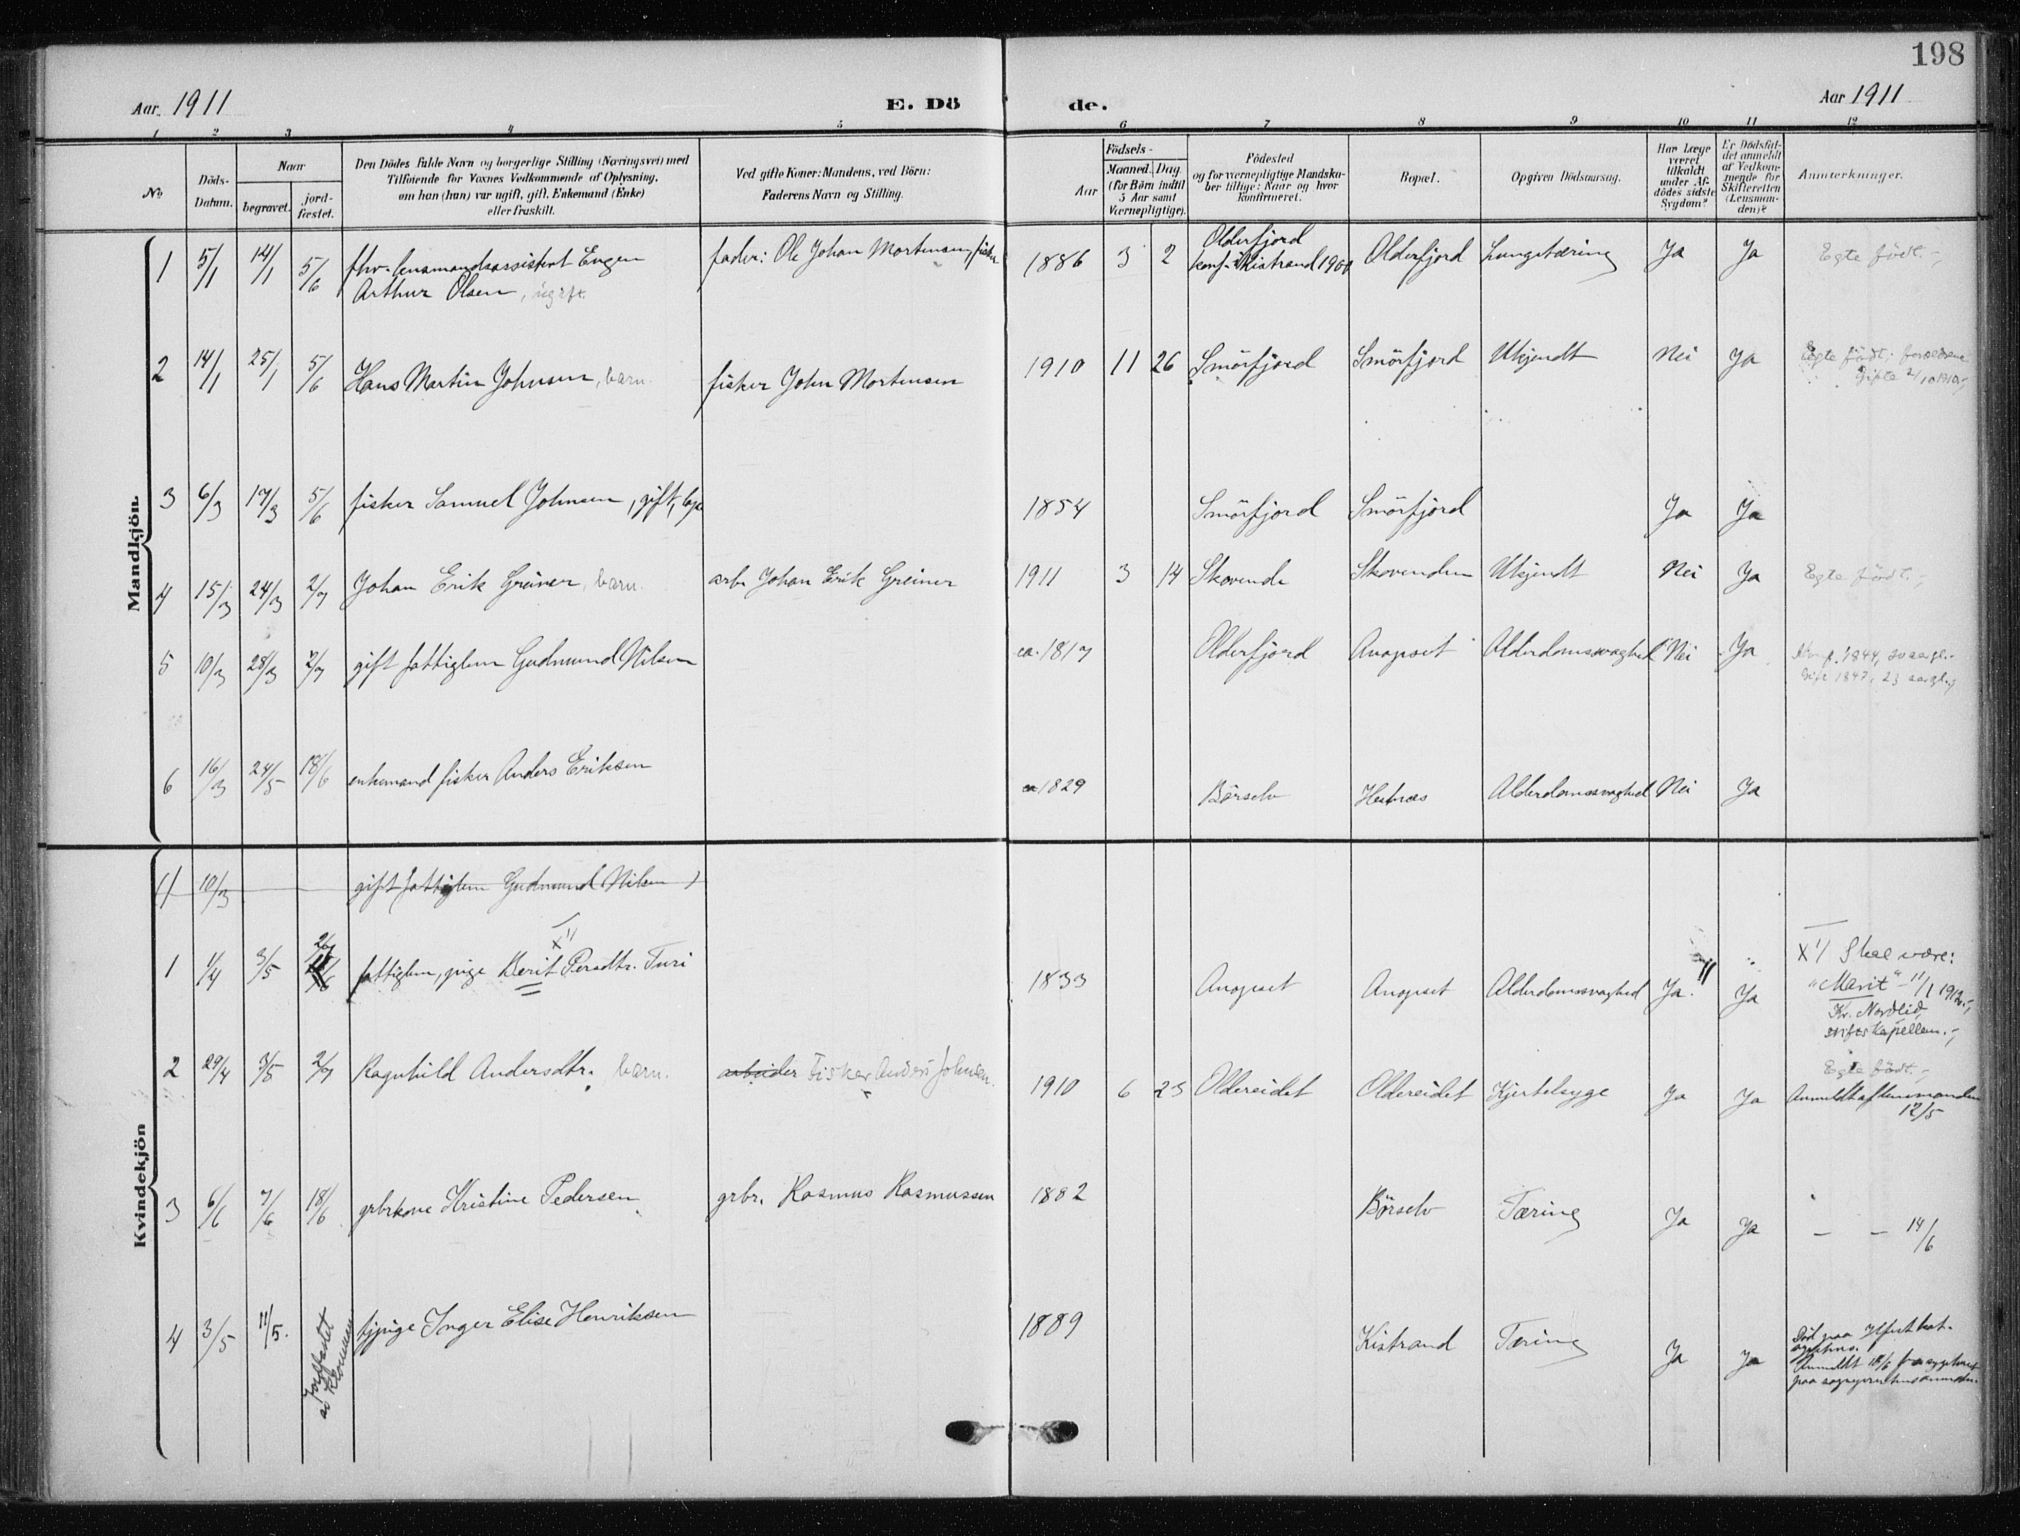 198
Aar 1911
E. Dö
de.
Aar 1911
1 2 3 4 5 6 7 8 9 10 11 12
No.
Döds-
Datum.
Naar
begravet.
jord-
fæstet.
Den Dödes fulde Navn og borgerlige Stilling (Næringsvei) med
Tilföiende for Voxnes Vedkommende af Oplysning,
om han (hun) var ugift, gift, Enkemand (Enke)
eller fraskilt.
Ved gifte Koner: Mandens, ved Börn:
Faderens Navn og Stilling.
Födsels-
Aar
Maaned. Dag
(for Börn indtil
5 Aar samt
Værnepligtige).
Födested
og for værnepligtige Mandska-
ber tillige: Naar og hvor
konfirmeret.
Bopæl.
Opgiven Dödsaarsag.
Har Læge
været
tilkaldt
under Af-
dödes sidste
Sygdom?
Er Dödsfal-
det anmeldt
af Vedkom-
mende for
Skifteretten
(Lensman-
den)?
Anmærkninger.
Mandkjön.
1 5/1 14/1 5/6 fhv. lensmandsassistent Eugen fader: Ole Johan Mortensen, fisker 1886 3 2 Olderfjord Olderfjord Lungetæring Ja Ja Egte födt.-
Arthur Olsen, ugift. konf. Kistrand 1900
2 14/1 25/1 5/6 Hans Martin Johnsen, barn. fisker John Mortensen 1910 11 26 Smörfjord Smörfjord Ukjendt Nei Ja Egte födt; forældrene
gifte 2/10 1910.-
3 6/3 17/3 5/6 fisker Samuel Johnsen, gift, 1854 Smörfjord Smörfjord Ja Ja
4 15/3 24/3 2/7 Johan Erik Greiner, barn. arbr Johan Erik Greiner 1911 3 14 Skovende Skovenden Ukjendt Nei Ja Egte födt.-
5 10/3 28/3 2/7 gift fattiglem Gudmund Nilsen ca. 1817 Olderfjord Anopset Alderdomssvaghed Nei Ja 1844, 20 aar gl.-
Gift 1847, 23 aar gl.
6 16/3 24/5 18/6 enkemand fisker Anders Eriksen ca 1829 Börselv Hestnæs Alderdomssvaghed Nei Ja
Kvindekjön
(1 10/3 gift fattiglem Gudmund Nilsen)
X 1/
1 1/4 3/5 2/7 fattiglem, pige Berit Persdtr. Turi 1833 Anopset Anopset Alderdomssvaghed Ja. Ja X 1/ Skal være:
"Marit" - 11/1 1912.-,
Kr. Nordlid,
kapellan.-,
2 29/4 3/5 2/7 Ragnhild Andersdtr. barn. arbeider Fisker Anders Johnsen. 1910 6 23 Oldereidet Oldereidet Kjertelsyge Ja Ja Egte födt.-,
Anmeldt af lensmanden
12/5
3 6/6 7/6 18/6 grbrkone Kristine Pedersen grbr. Rasmus Rasmussen 1882 Börselv Tæring Ja Ja - - 14/6
4 3/5 11/5. Jordfæstet
av
tjpige Inger Elise Henriksen 1889 Kistrand Tæring Ja Ja Död paa
Anmeldt 18/6 fra sygehuset
paa